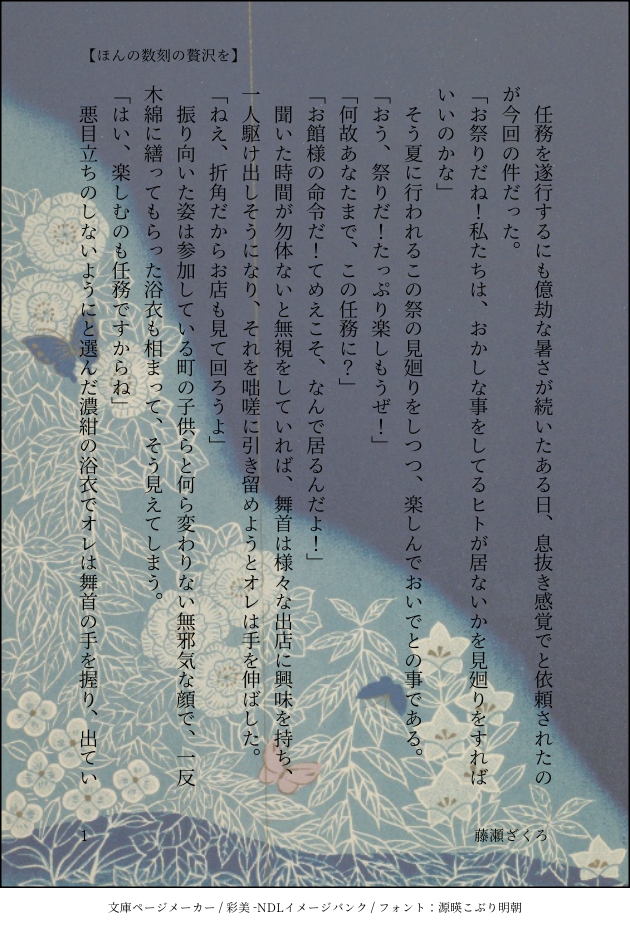 【ほんの数刻の贅沢を】
任務を遂行するにも億劫な暑さが続いたある日、息抜き感覚でと依頼されたの
が今回の件だった。
「お祭りだね！私たちは、おかしな事をしてるヒトが居ないかを見廻りをすれば
いいのかな」
そう夏に行われるこの祭の見廻りをしつつ、楽しんでおいでとの事である。
「おう、祭りだ！たっぷり楽しもうぜ！」
「何故あなたまで、この任務に？」
「お館様の命令だ！てめえこそ、なんで居るんだよ！」
聞いた時間が勿体ないと無視をしていれば、舞首は様々な出店に興味を持ち、
一人駆け出しそうになり、それを咄嗟に引き留めようとオレは手を伸ばした。
「ねえ、折角だからお店も見て回ろうよ」
振り向いた姿は参加している町の子供らと何ら変わりない無邪気な顔で、一反
木綿に繕ってもらった浴衣も相まって、そう見えてしまう。
「はい、楽しむのも任務ですからね」
悪目立ちのしないようにと選んだ濃紺の浴衣でオレは舞首の手を握り、出てい
藤瀬ざくろ
1
文庫ページメーカー / 彩美 -NDLイメージバンク / フォント：源暎こぶり明朝